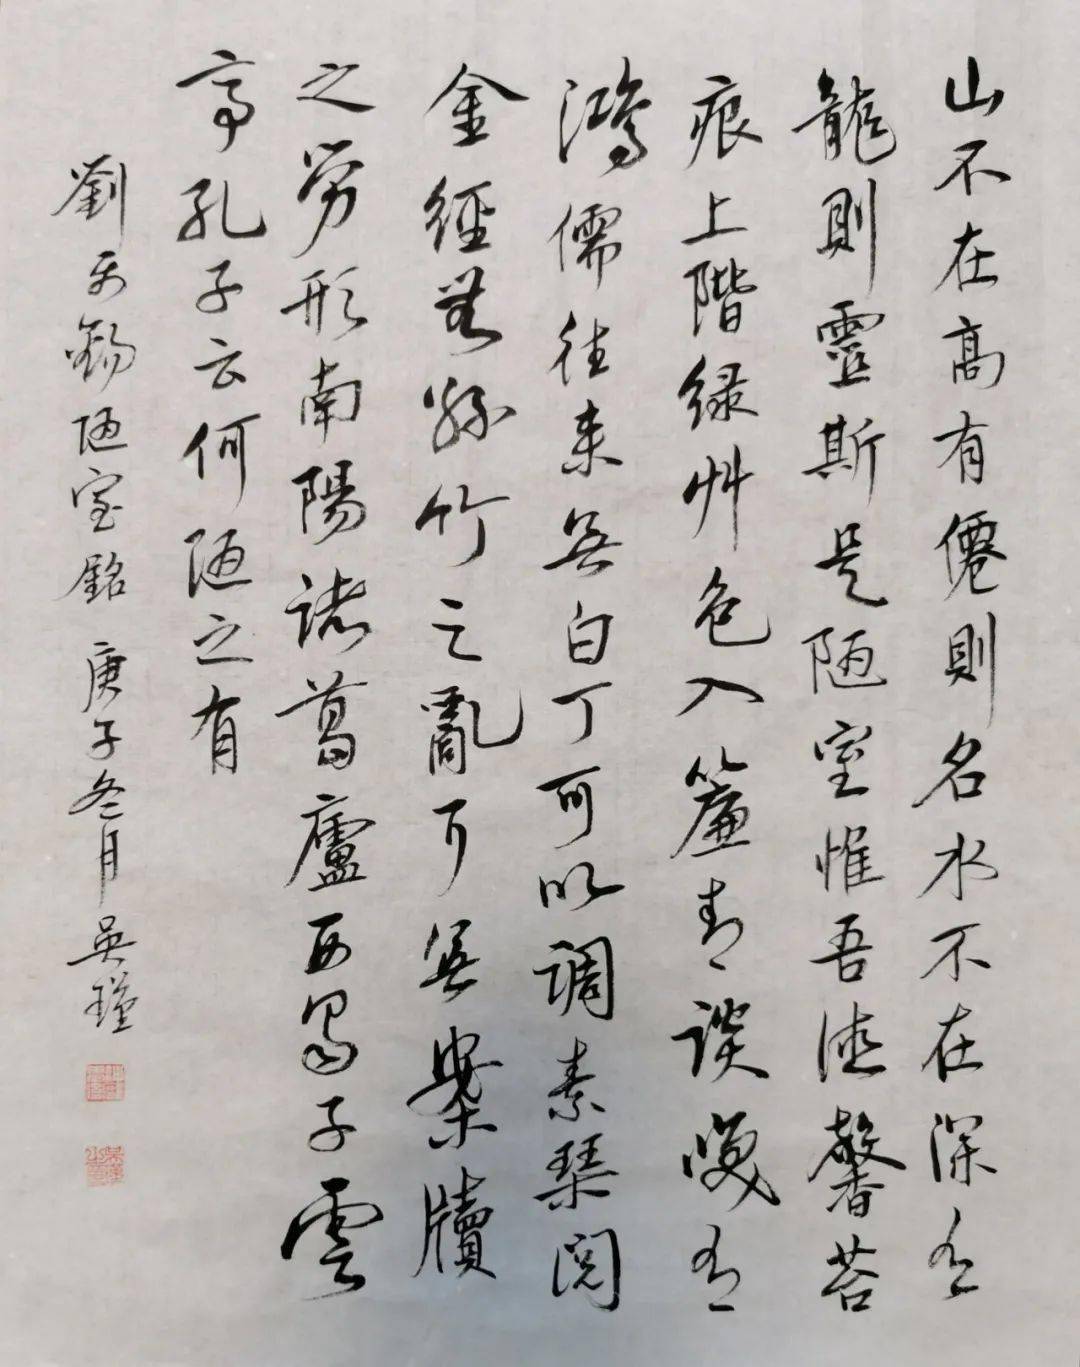 山不在高有僊則名水不在深有
龍則靈斯是陋室惟吾德馨苔
痕上階綠艸色入簾青談笑有
鴻儒往來無白丁可以調素琴閱
金經無絲竹之亂耳無案牘
之勞形南陽諸葛廬西蜀子雲
亭孔子云何陋之有
劉禹錫陋室銘 庚子冬月 吳瑾